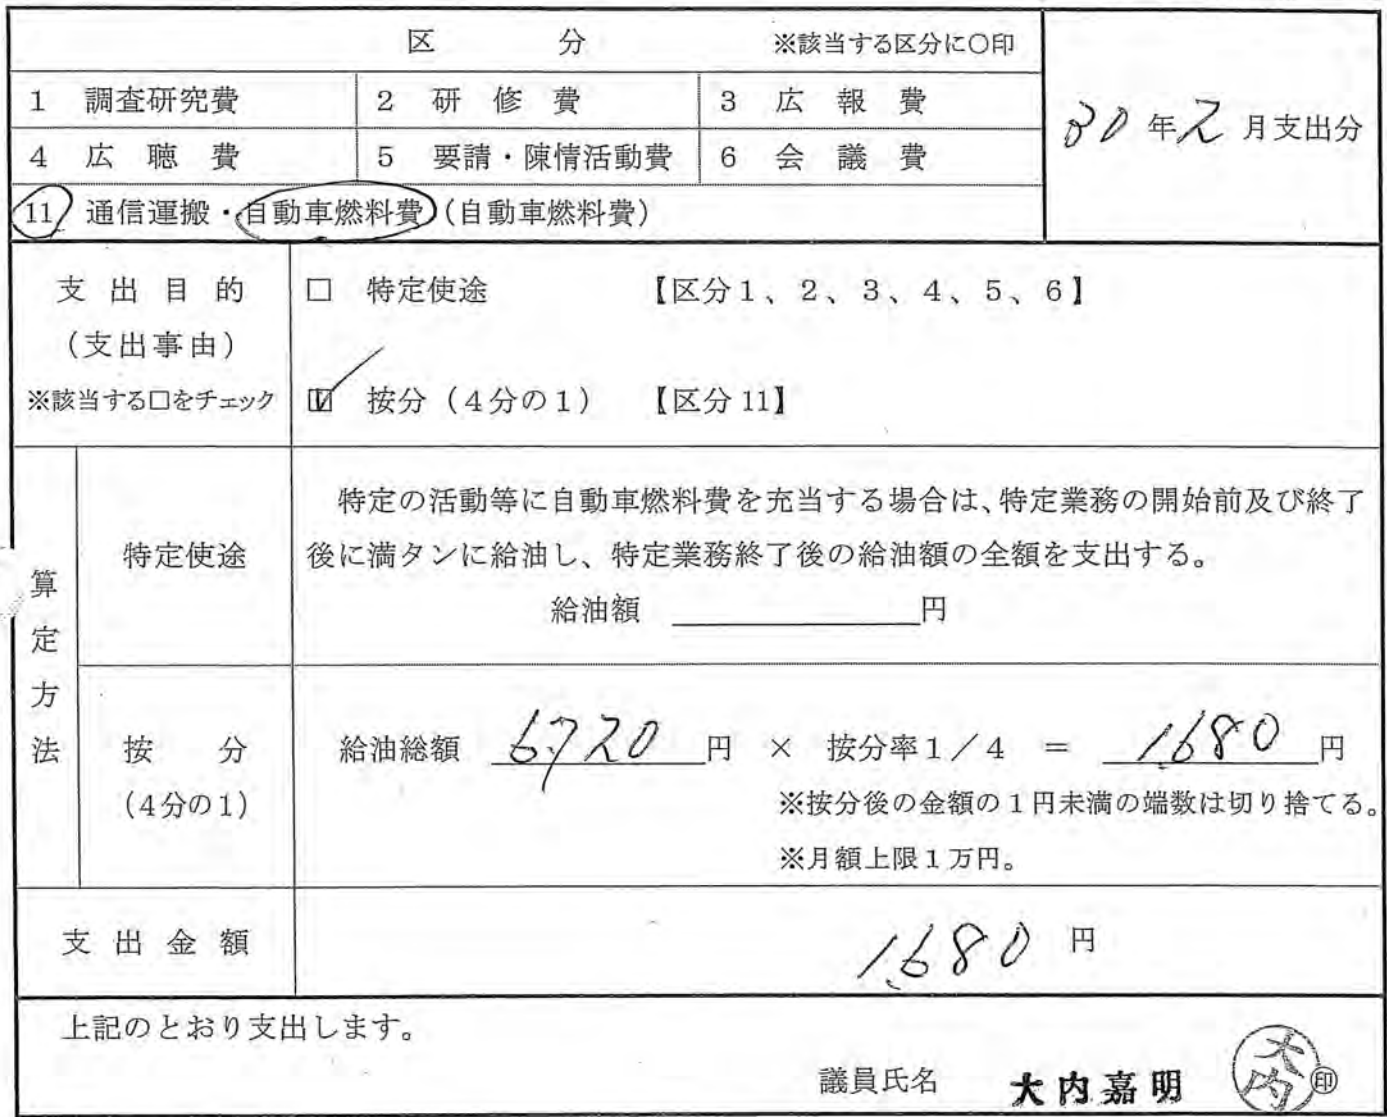 区 分 ※該当する区分に○印
1 調査研究費 2 研修費 3 広報費
30年2月支出分
4 広聴費 5 要請・陳情活動費 6 会議費
11 通信運搬・自動車燃料費(自動車燃料費)
支出目的
(支出事由)
※該当する□をチェック
□ 特定使途 【区分1、2、3、4、5、6】
☑ 按分(4分の1) 【区分11】
算定方法
特定使途
特定の活動等に自動車燃料費を充当する場合は、特定業務の開始前及び終了
後に満タンに給油し、特定業務終了後の給油額の全額を支出する。
給油額 ________円
按分
(4分の1)
給油総額 6,720円 × 按分率1/4 = 1,680円
※按分後の金額の1円未満の端数は切り捨てる。
※月額上限1万円。
支出金額 1,680円
上記のとおり支出します。
議員氏名 大内嘉明 大内 印